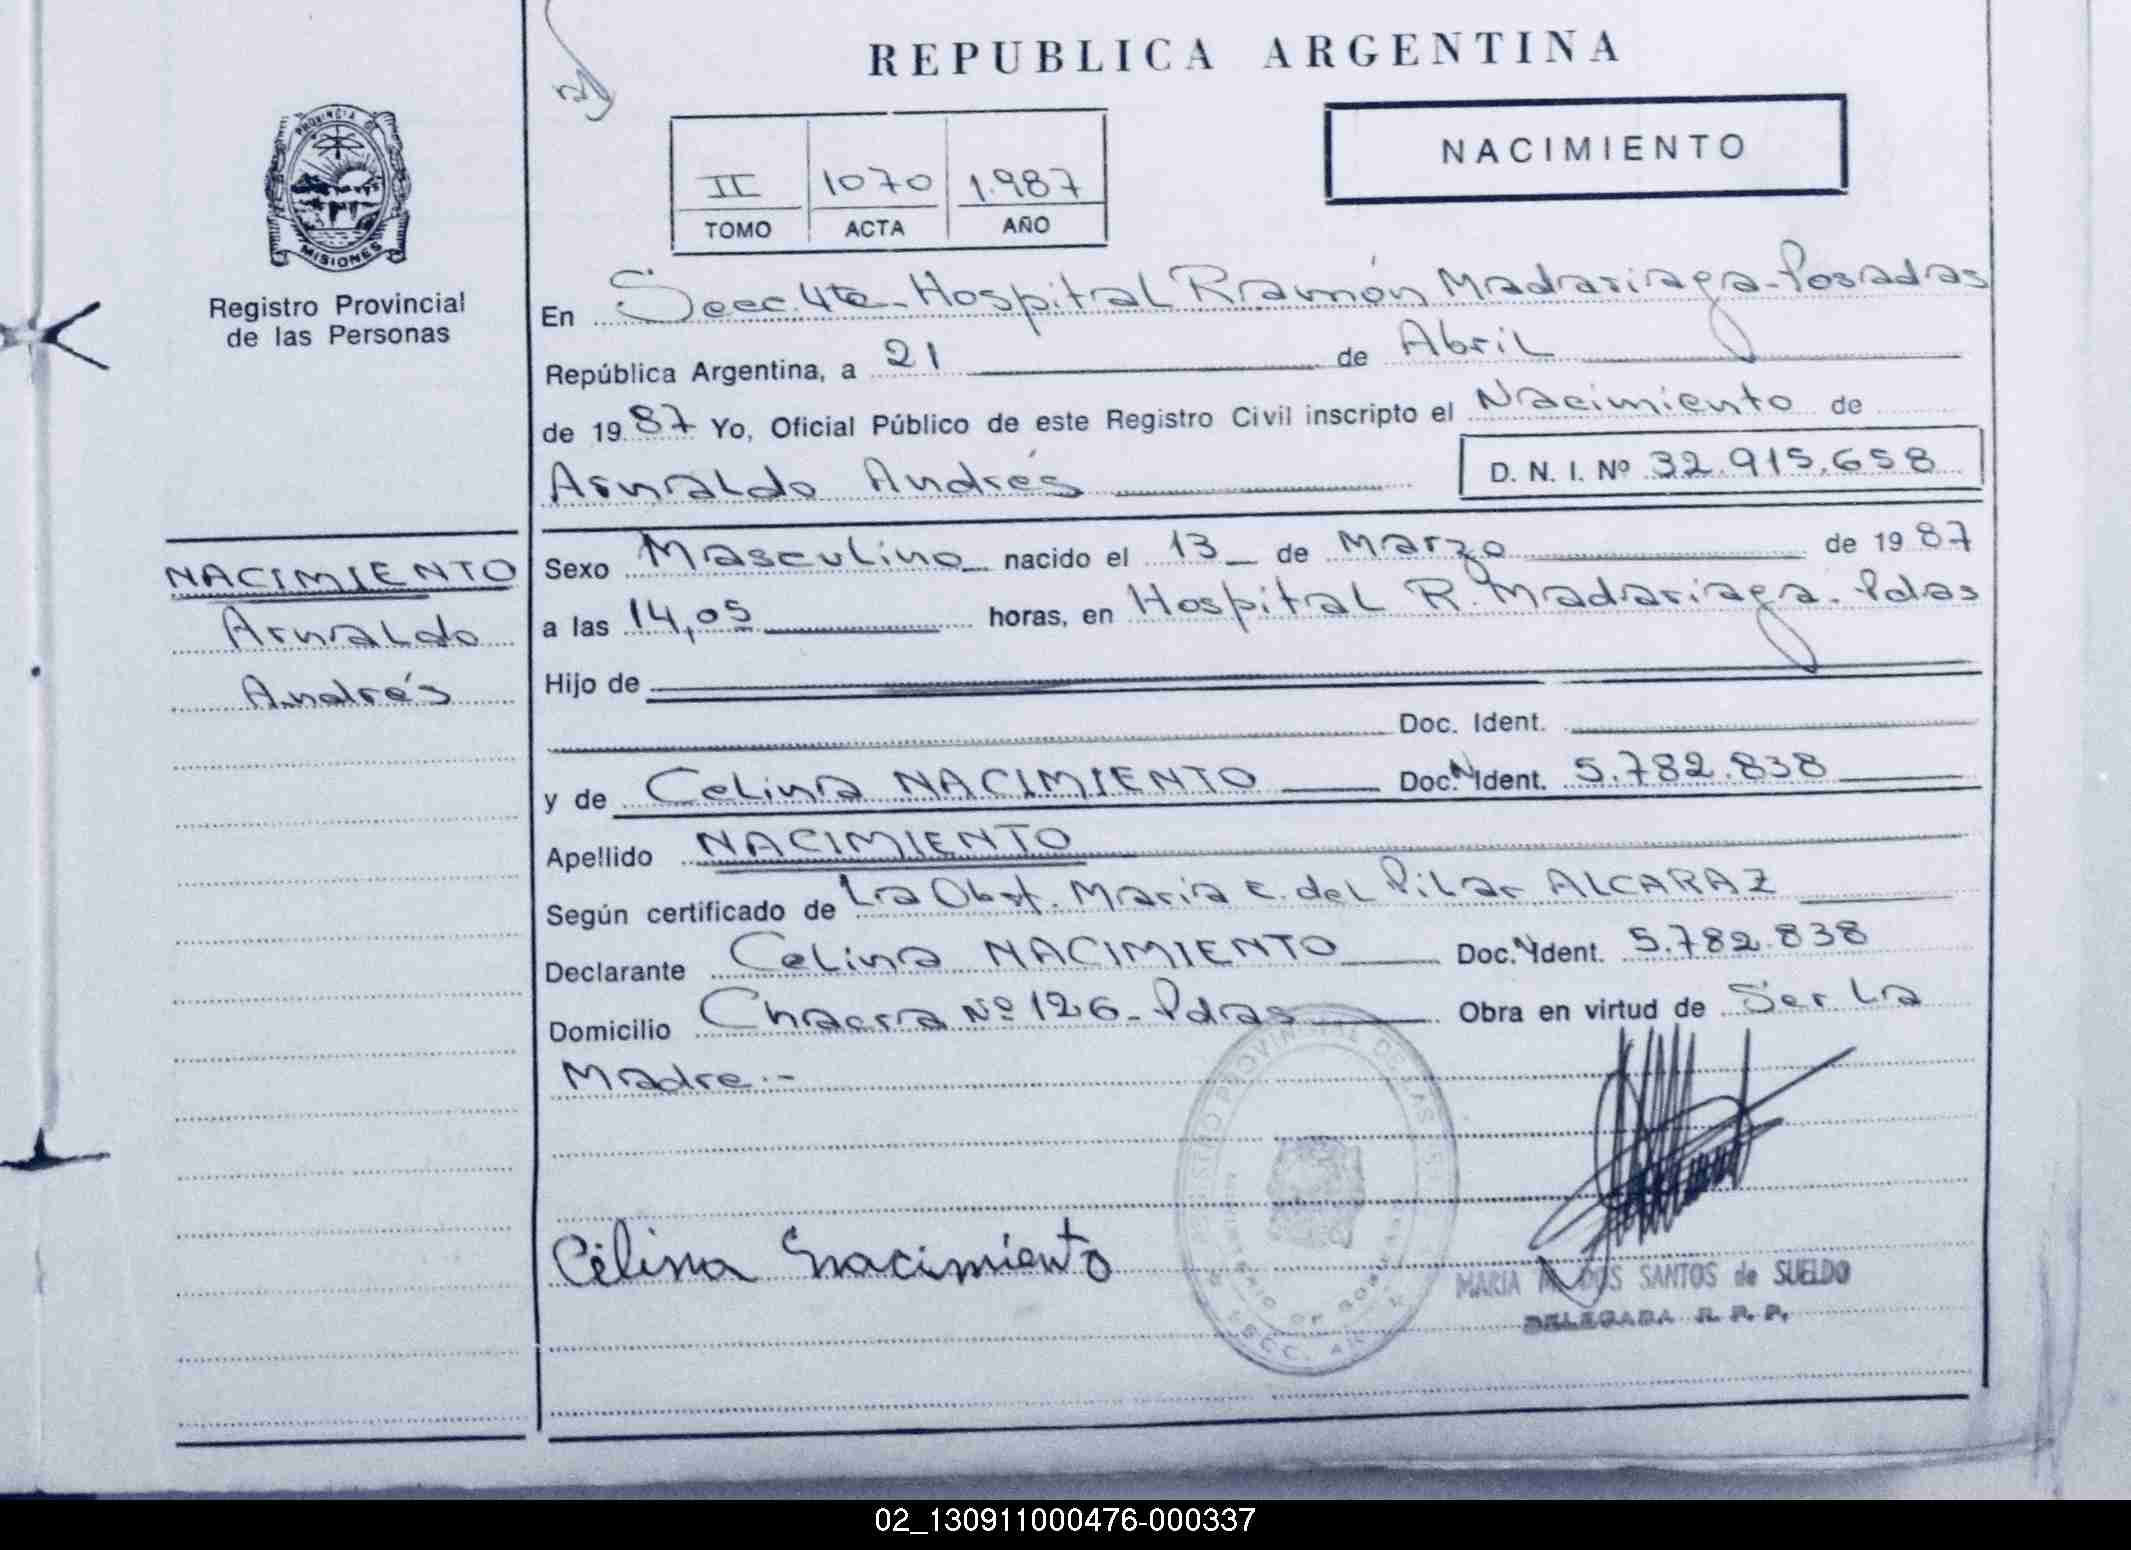 REPUBLICA ARGENTINA
PROVINCIA DE
MISIONES
Registro Provincial
de las Personas
II 1070 1.987
TOMO ACTA AÑO
NACIMIENTO
En Secc. 4ta - Hospital Ramón Madariaga - Posadas
República Argentina, a 21 de Abril
de 1987 Yo, Oficial Público de este Registro Civil inscripto el Nacimiento de
Arnaldo Andrés D. N. I. Nº 32.915.658
NACIMIENTO
Arnaldo
Andrés
Sexo Masculino nacido el 13 de Marzo de 1987
a las 14,05 horas, en Hospital R. Madariaga. Pdas
Hijo de
Doc. Ident.
y de Celina NACIMIENTO Doc. N Ident. 5.782.838
Apellido NACIMIENTO
Según certificado de La Obst. María E. del Pilar ALCARAZ
Declarante Celina NACIMIENTO Doc. N Ident. 5.782.838
Domicilio Chacra Nº 126 - Pdas Obra en virtud de Ser La
Madre.-
REGISTRO PROVINCIAL DE LAS
Celina Nacimiento
MARIA DOS SANTOS de SUELDO
DELEGADA R. P. P.
02_130911000476-000337